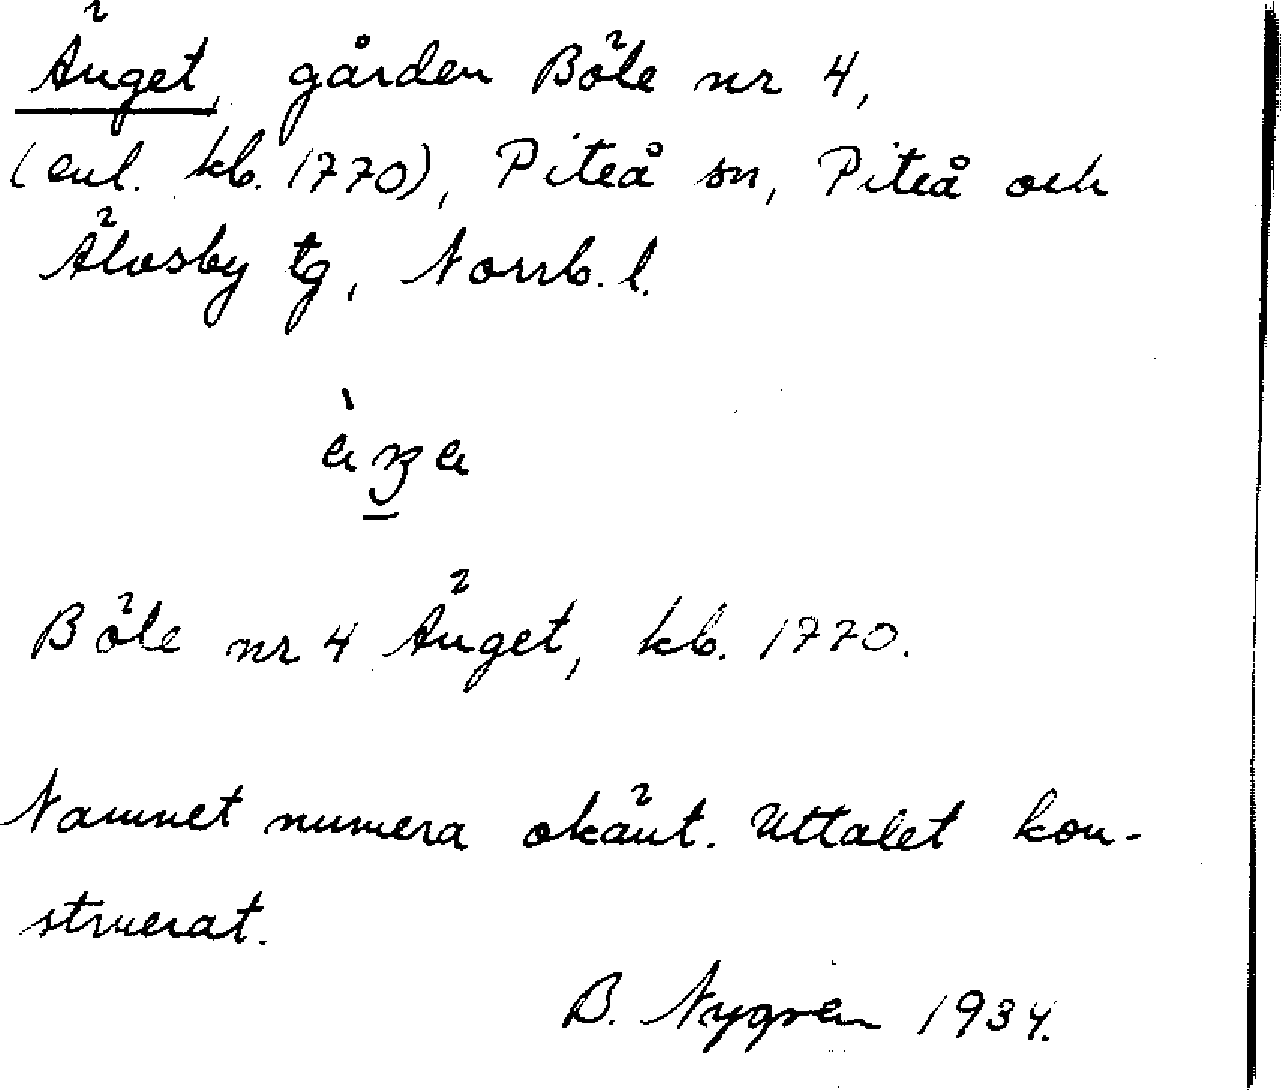 Änget, gården Böle nr 4,
(enl. kb. 1770), Piteå sn, Piteå och
Älvsby tg, Norrb. l.
Böle nr 4 Änget, kb. 1770.
Namnet numera okänt. Uttalet kon-
struerat.
B. Nygren 1934.